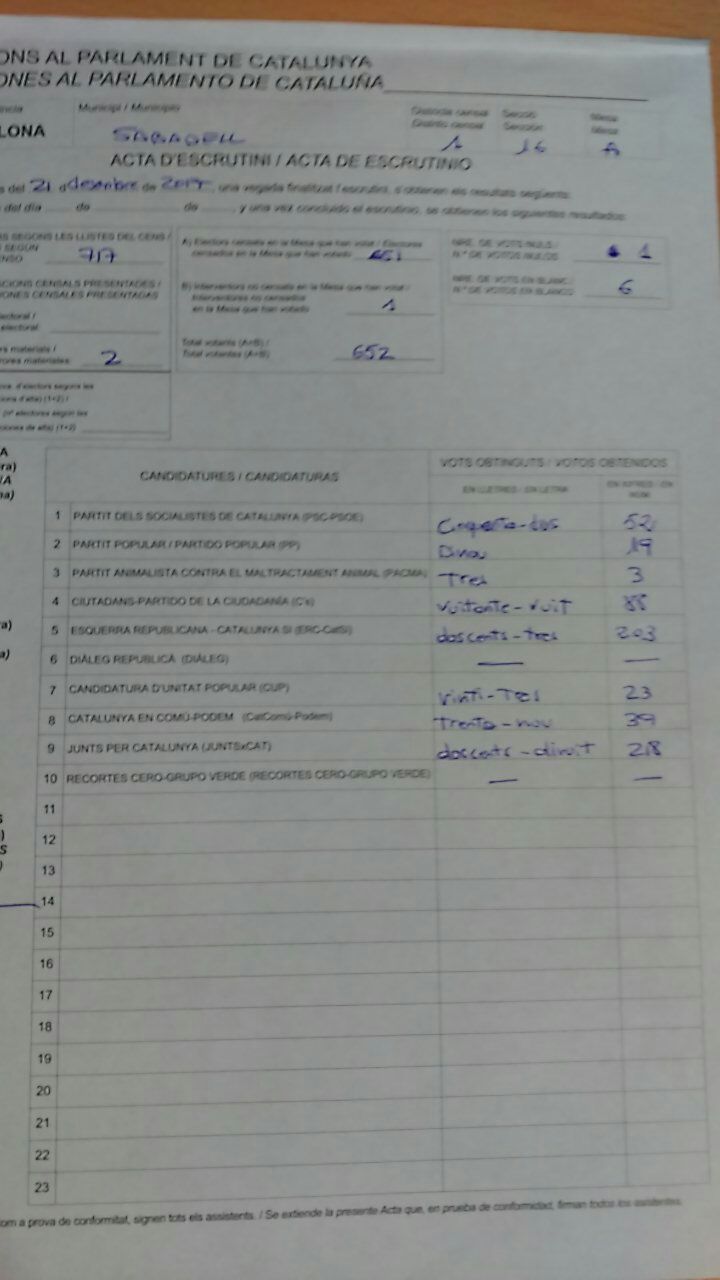 ONS AL PARLAMENT DE CATALUNYA
ONES AL PARLAMENTO DE CATALUÑA
ncia Municipi / Municipio Districte censal Secció Mesa
Distrito censal Sección Mesa
LONA SABADELL 1 16 A
ACTA D'ESCRUTINI / ACTA DE ESCRUTINIO
s del 21 d desembre de 2017, una vegada finalitzat l'escrutini, s'obtenen els resultats següents:
del día de de , y una vez concluido el escrutinio, se obtienen los siguientes resultados:
S SEGONS LES LLISTES DEL CENS /
SEGÚN
NSO 717
CIONS CENSALS PRESENTADES /
IONES CENSALES PRESENTADAS
lectoral /
electoral
rs materials /
rores materiales 2
ova. d'electors segons les
ions d'alta) (1+2) /
(nº electores según las
ciones de alta) (1+2)
A) Electors censats en la Mesa que han votat / Electores
censados en la Mesa que han votado 651
B) Interventors no censats en la Mesa que han votat /
Interventores no censados
en la Mesa que han votado 1
Total votants (A+B) /
Total votantes (A+B) 652
NRE. DE VOTS NULS /
N.º DE VOTOS NULOS 1
NRE. DE VOTS EN BLANC /
N.º DE VOTOS EN BLANCO 6
A
ra)
IA
na)
CANDIDATURES / CANDIDATURAS VOTS OBTINGUTS / VOTOS OBTENIDOS
EN LLETRES - EN LETRA EN XIFRES - EN
NÚM.
1 PARTIT DELS SOCIALISTES DE CATALUNYA (PSC-PSOE) Cinquanta-dos 52
2 PARTIT POPULAR / PARTIDO POPULAR (PP) Dinou 19
3 PARTIT ANIMALISTA CONTRA EL MALTRACTAMENT ANIMAL (PACMA) Tres 3
4 CIUTADANS-PARTIDO DE LA CIUDADANÍA (C's) vuitanta-vuit 88
5 ESQUERRA REPUBLICANA - CATALUNYA SÍ (ERC-CatSí) doscents-tres 203
6 DIÀLEG REPUBLICÀ (DIÀLEG) — —
7 CANDIDATURA D'UNITAT POPULAR (CUP) vinti-tres 23
8 CATALUNYA EN COMÚ-PODEM (CatComú-Podem) trenta-nou 39
9 JUNTS PER CATALUNYA (JUNTSxCAT) doscents-divuit 218
10 RECORTES CERO-GRUPO VERDE (RECORTES CERO-GRUPO VERDE) — —
11
12
13
14
15
16
17
18
19
20
21
22
23
om a prova de conformitat, signen tots els assistents. / Se extiende la presente Acta que, en prueba de conformidad, firman todos los asistentes.